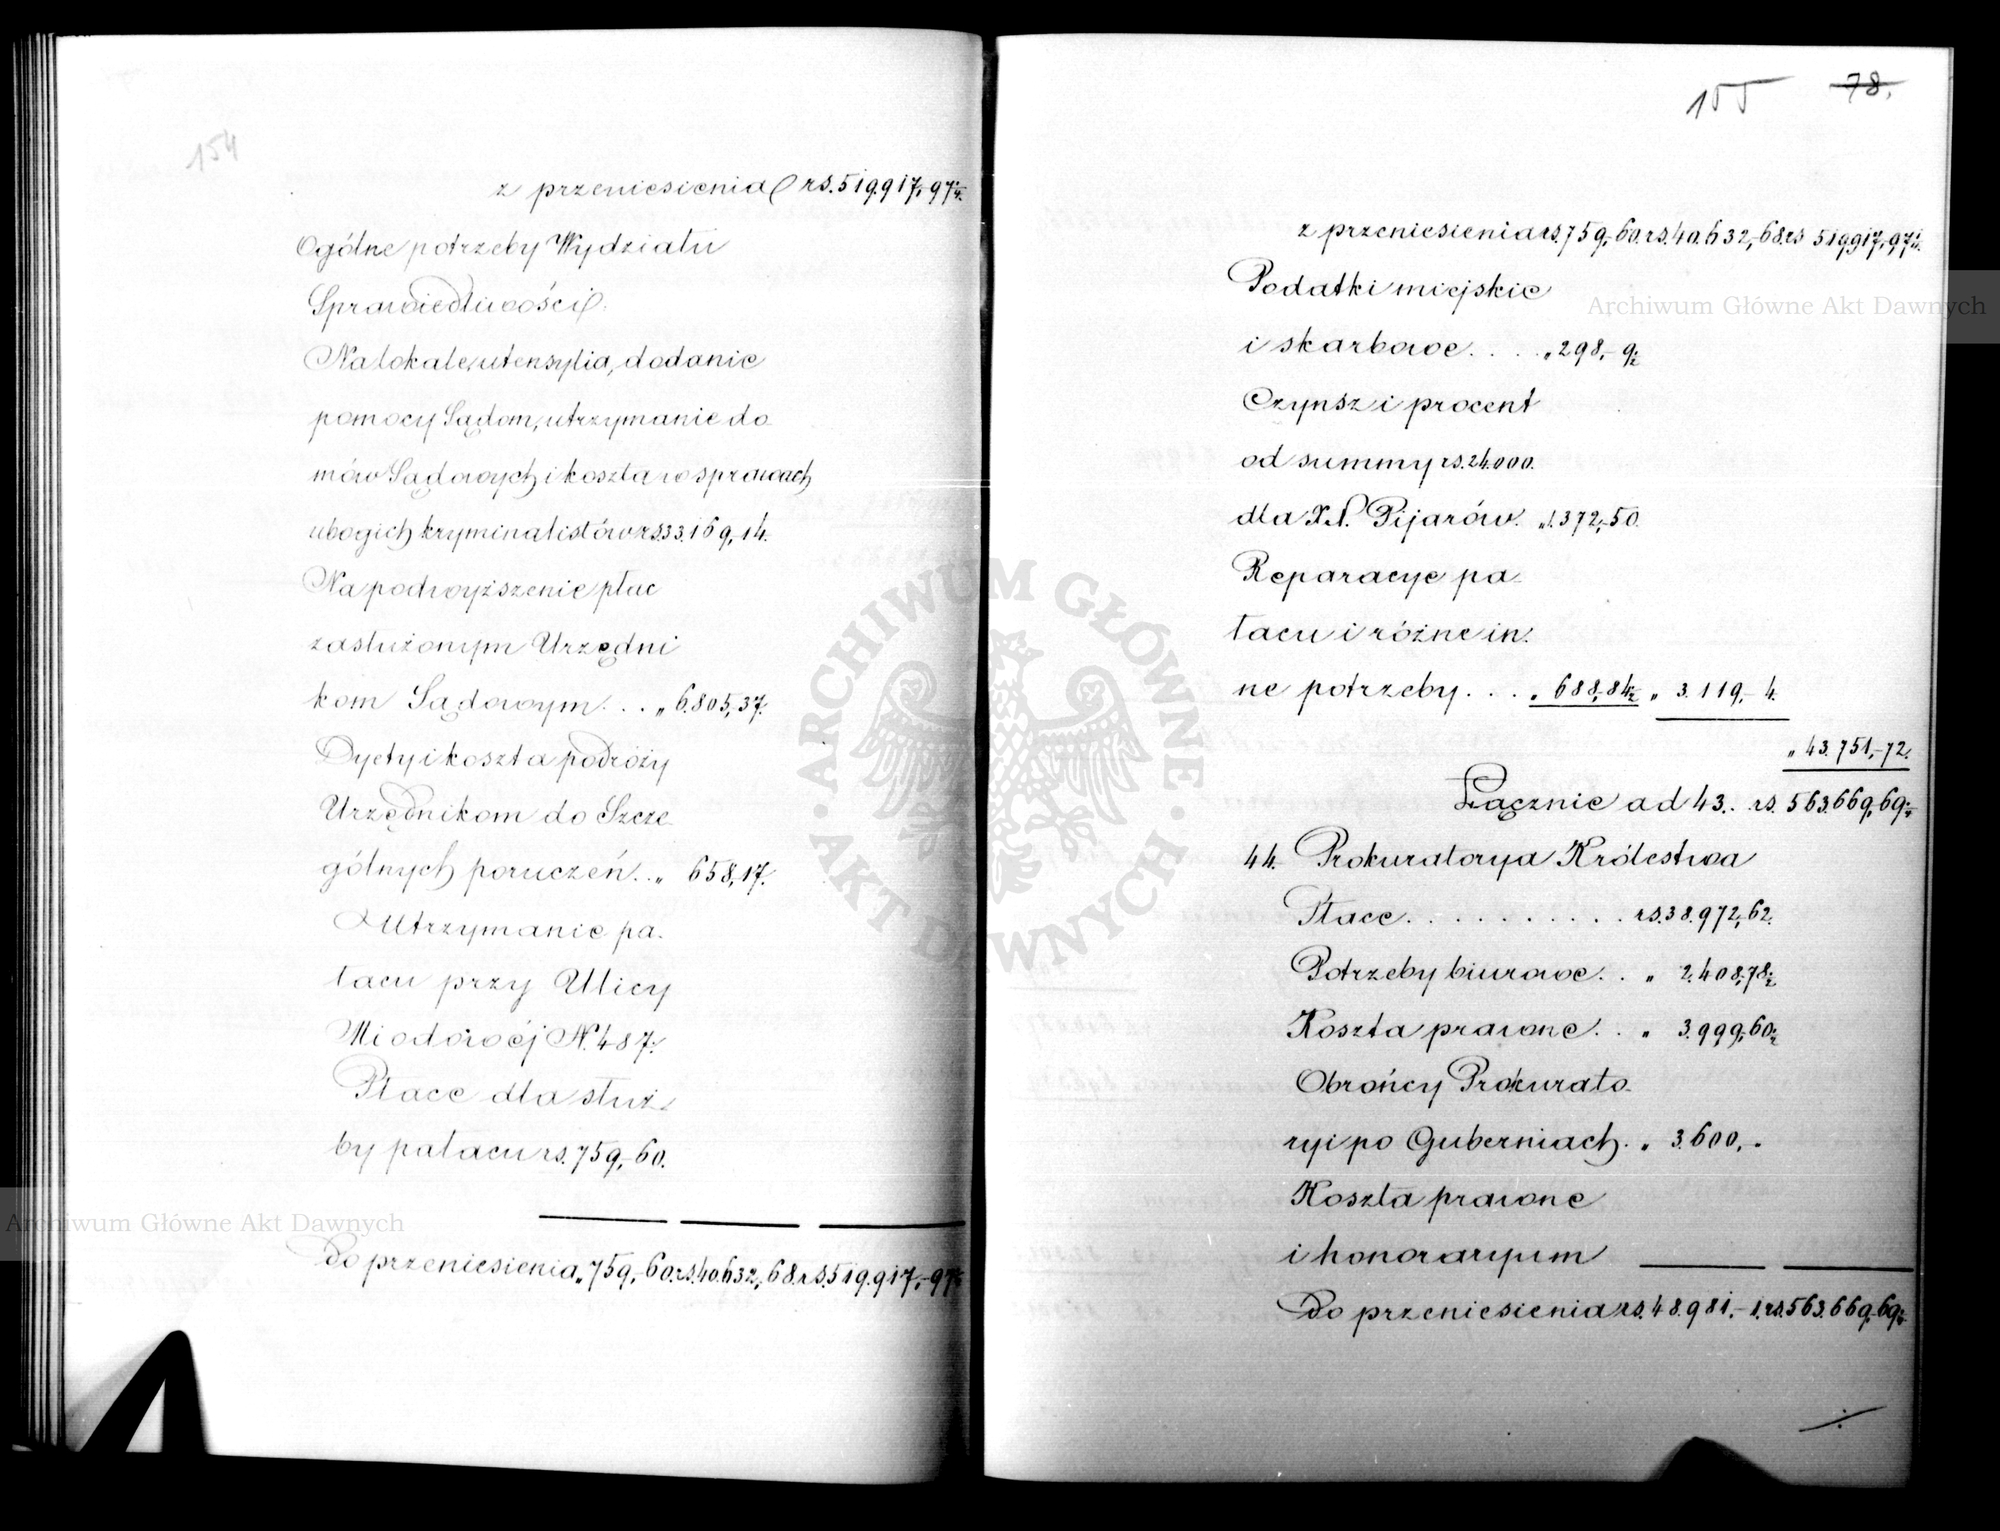 154
z przeniesienia rs. 519.917,-97¼.
Ogólne potrzeby Wydziału
Sprawiedliwości:
Na lokale, utensylia, dodanie
pomocy Sądom, utrzymanie do
mów Sądowych i koszta w sprawach
ubogich kryminalistów rs. 33.169,-14.
Na podwyższenie płac
zasłużonym Urzędni
kom Sądowym . . . „ 6.805,-37.
Dyety i koszta podróży
Urzędnikom do Szcze
gólnych poruczeń . . „ 658,17.
Utrzymanie pa-
łacu przy Ulicy
Miodowéj N. 487.
Płace dla służ-
by pałacu rs. 759,-60.
Do przeniesienia „ 759,-60. rs. 40.632,-68. rs. 519.917,-97¼
155 78.
z przeniesienia rs. 759,-60. rs. 40.632,-68. rs 519.917,-97¼.
Podatki miejskie
i skarbowe . . . . „ 298,- 9½
Czynsz i procent
od summy rs. 24.000.
dla XX. Pijarów. „ 1.372,-50.
Reparacye pa-
łacu i różne in-
ne potrzeby . . . „ 688,-84½ „ 3.119,- 4.
„ 43.751,-72.
Łącznie ad 43. rs. 563.669,-69¼
44. Prokuratorya Królestwa
Płace . . . . . . . . . . . rs. 38.972,-62.
Potrzeby biurowe . . „ 2.408,-78½
Koszta prawne . . „ 3.999,-60½
Obrońcy Prokurato-
ryi po Guberniach. „ 3.600,-
Koszta prawne
i honoraryum
Do przeniesienia rs. 48.981,- 1. rs. 563.669,-69¼
Archiwum Główne Akt Dawnych
Archiwum Główne Akt Dawnych
ARCHIWUM GŁÓWNE · AKT DAWNYCH ·